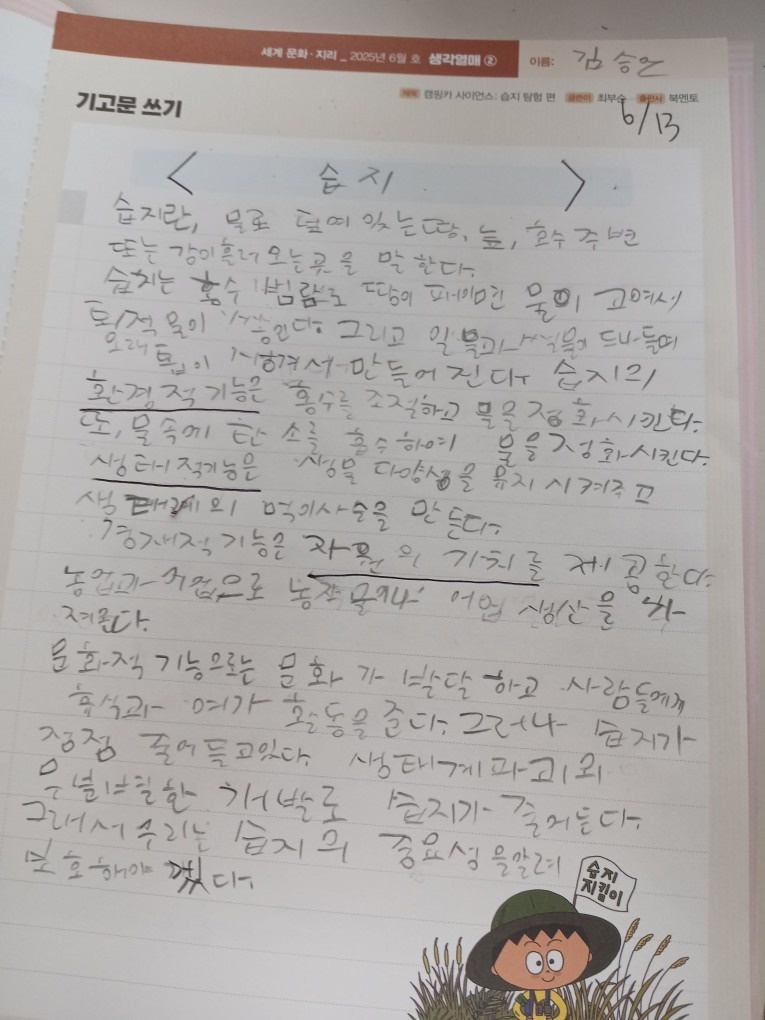 세계 문화·지리 _ 2025년 6월 호 생각열매 ②
이름: 김승언
제목 캠핑카 사이언스: 습지 탐험 편 글쓴이 최부순 출판사 북멘토
기고문 쓰기
6/13
< 습지 >
습지란, 물로 덮여 있는 땅, 늪, 호수 주변
또는 강이 흘러 오는 곳을 말한다.
습지는 홍수 범람로 땅이 패이면 물이 고여서
퇴적물이 쌓인다. 그리고 일 물과 식물이 드나들며
오래 이 만들어 진다. 습지의
환경적 기능은 홍수를 조절하고 물을 정화시킨다.
또, 물속에 탄소를 흡수하여 물을 정화시킨다.
생태적기능은 생물 다양성을 유지 시켜주고
생태계의 먹이사슬을 만든다.
경재적 기능은 자원의 가치를 제공한다.
농업과 어업으로 농작물이나 어업 생산을
문화적 기능으로는 문화가 발달하고 사람들에게
휴식과 여가 활동을 준다. 그러나 습지가
점점 줄어들고있다. 생태계파괴와
무분별한 개발로 습지가 줄어든다.
그래서 우리는 습지의 중요성을알려
보호해야 겠다.
습지
지킴이